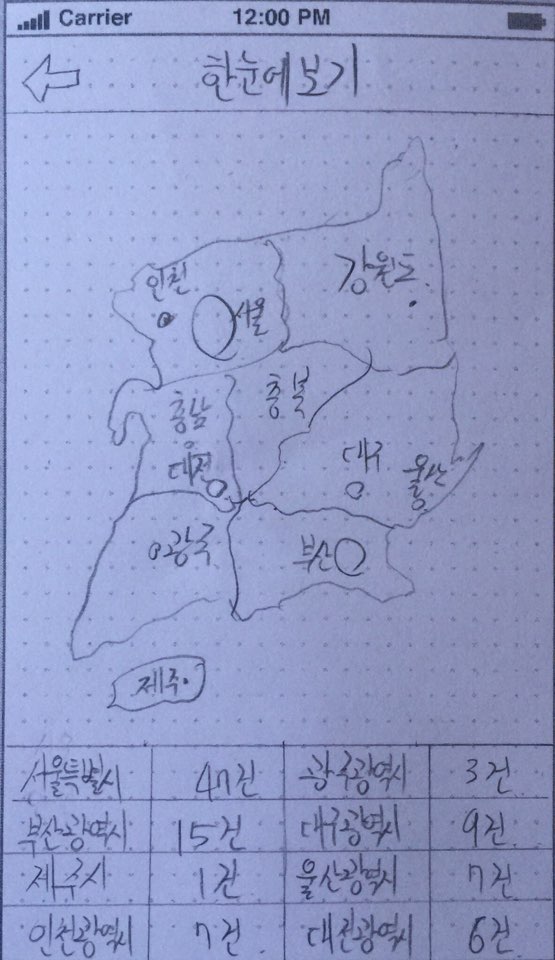 Carrier 12:00 PM
한눈에보기
강원도
인천
서울
충북
충남
대전
대구
울산
광주
부산
제주
서울특별시 47건 광주광역시 3건
부산광역시 15건 대구광역시 9건
제주시 1건 울산광역시 7건
인천광역시 7건 대전광역시 6건